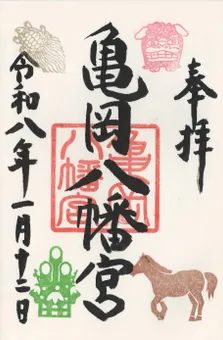 奉拝
亀岡八幡宮
亀岡
八幡宮
令和八年一月十二日